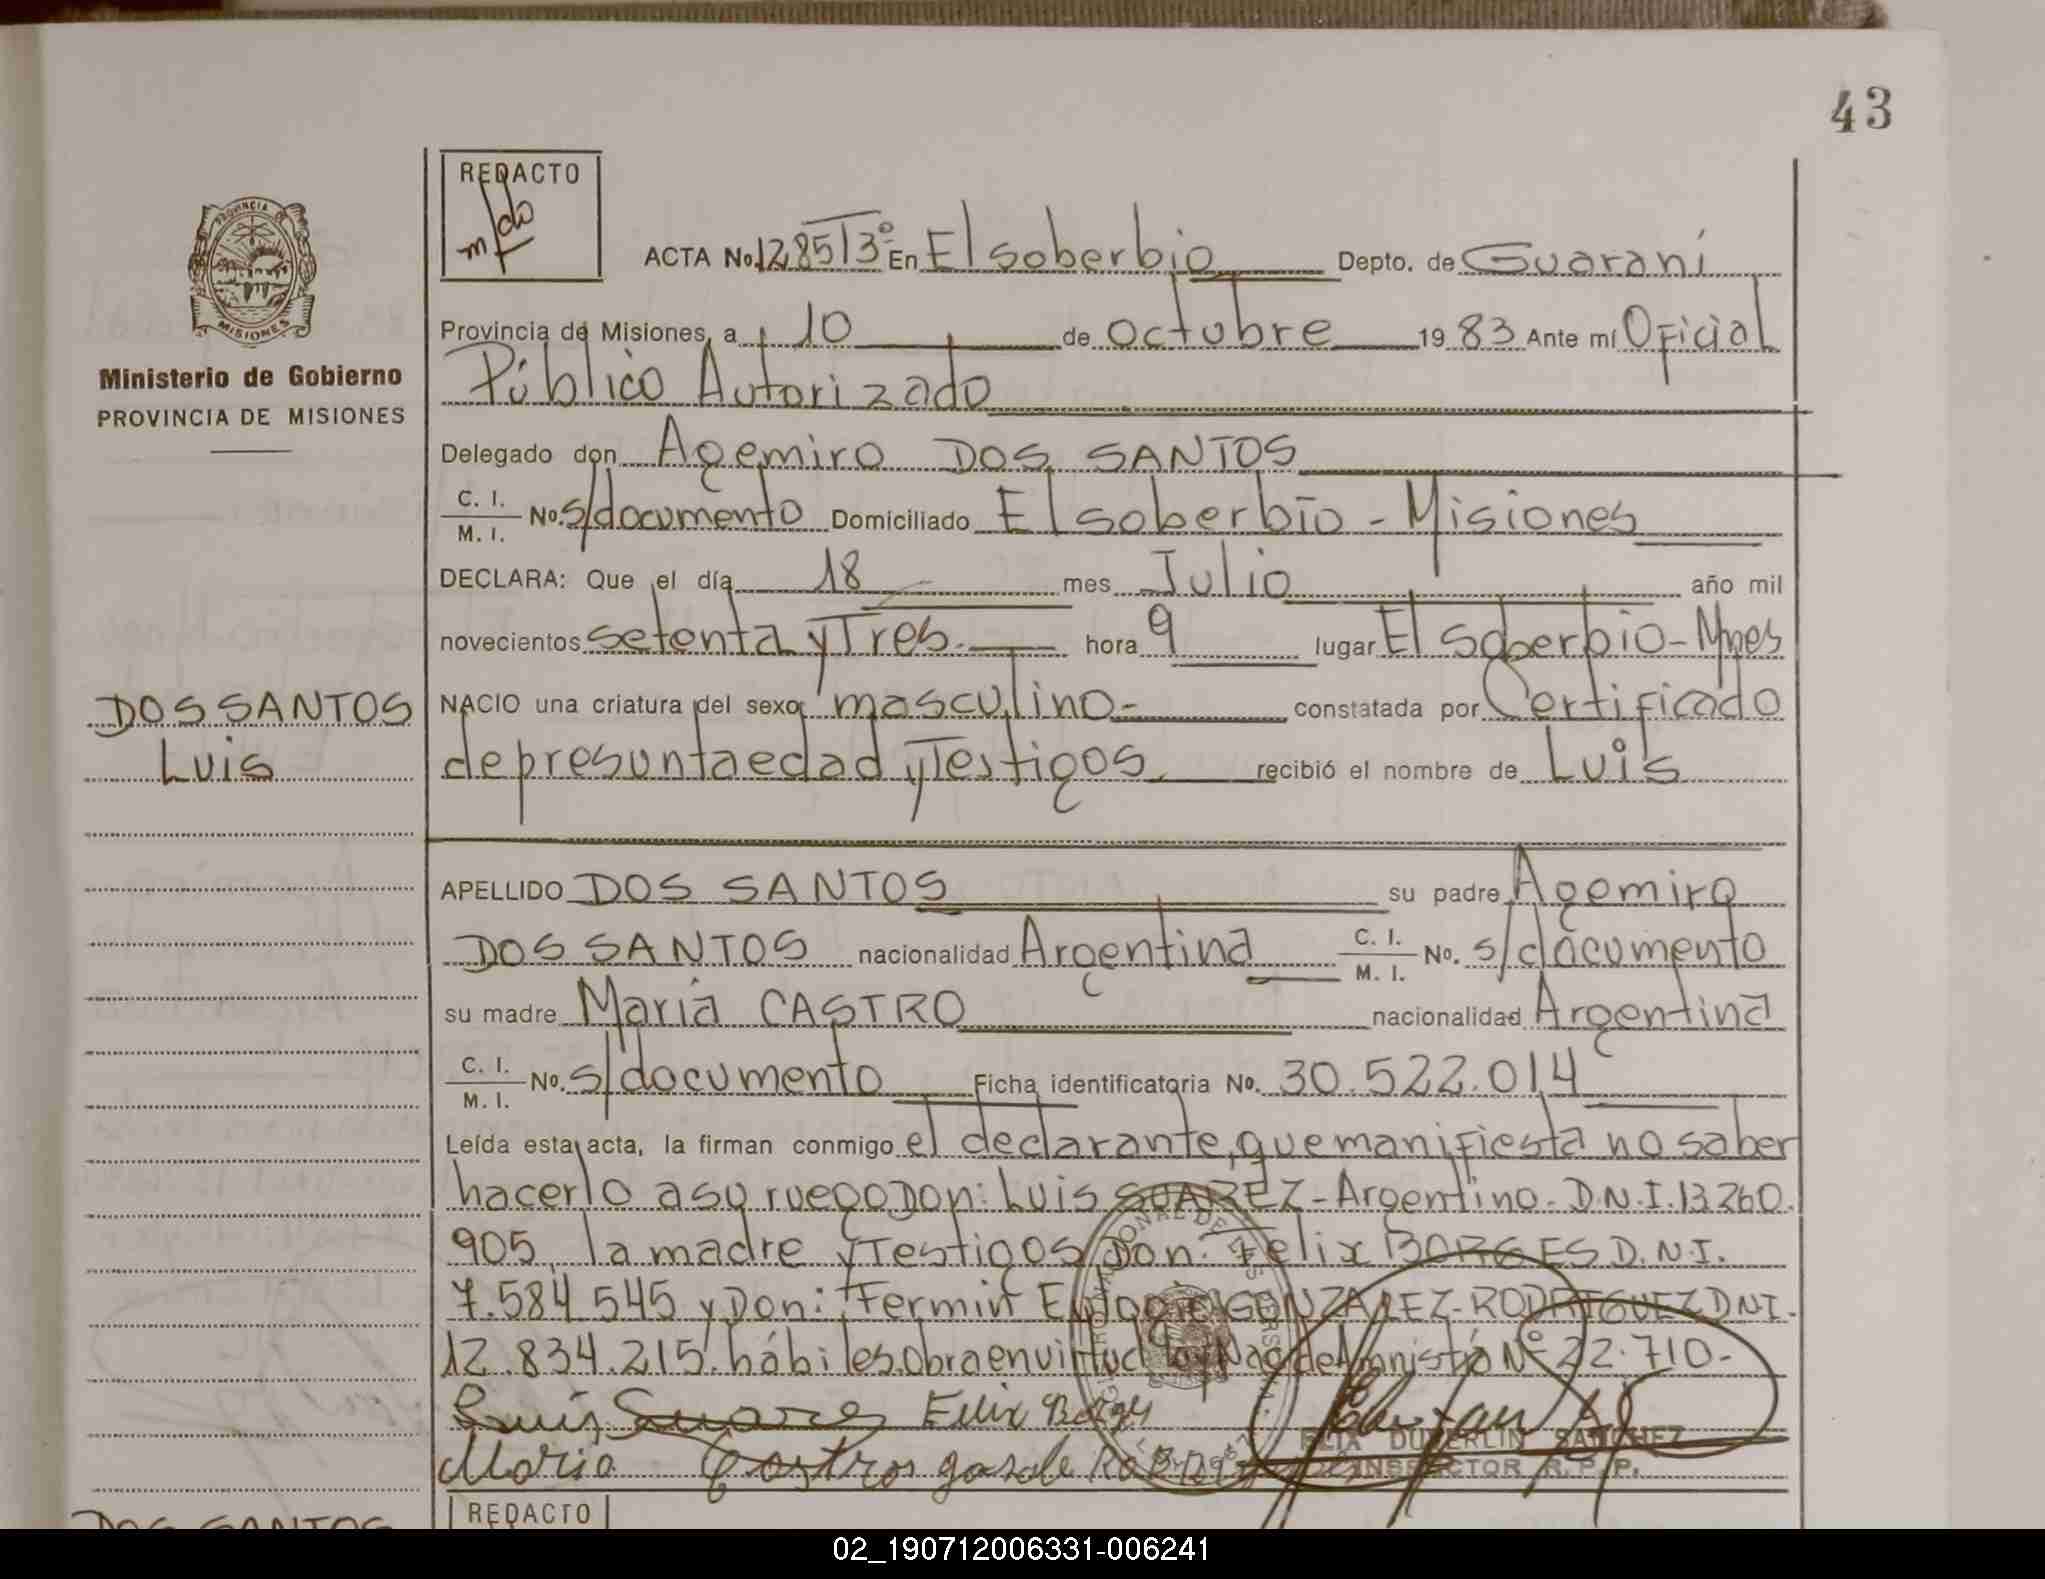 43
REDACTO
ACTA No. 1285 T3º En El soberbio Depto. de Guaraní
Provincia de Misiones, a 10 de octubre 1983 Ante mí Oficial
Público Autorizado
Ministerio de Gobierno
PROVINCIA DE MISIONES
Delegado don Agemiro DOS SANTOS
C. I. M. I. No. s/documento Domiciliado El soberbio - Misiones
DECLARA: Que el día 18 mes Julio año mil
novecientos setenta y Tres.- hora 9 lugar El soberbio - Mnes
DOS SANTOS
Luis
NACIO una criatura del sexo masculino- constatada por Certificado
de presunta edad y Testigos recibió el nombre de Luis
APELLIDO DOS SANTOS su padre Agemiro
DOS SANTOS nacionalidad Argentina C. I. M. I. No. s/documento
su madre Maria CASTRO nacionalidad Argentina
C. I. M. I. No. s/documento Ficha identificatoria No. 30.522.014
Leída esta acta, la firman conmigo el declarante, que manifiesta no saber
hacerlo a su ruego Don: Luis SUAREZ - Argentino - D.N.I. 13.260.
905, la madre y Testigos Don: Felix BORGES D.N.I.
7.584.545 y Don: Fermin Eulogio GONZALEZ-RODRIGUEZ DNI.
12.834.215. hábiles. obra en virtud Ley Nac de Amnistia Nº 22.710-
Luis Suares Felix Borges
Maria Castro
FELIX DUVERLIN SANCHEZ
INSPECTOR R. P. P.
REDACTO
DOS SANTOS
02_190712006331-006241